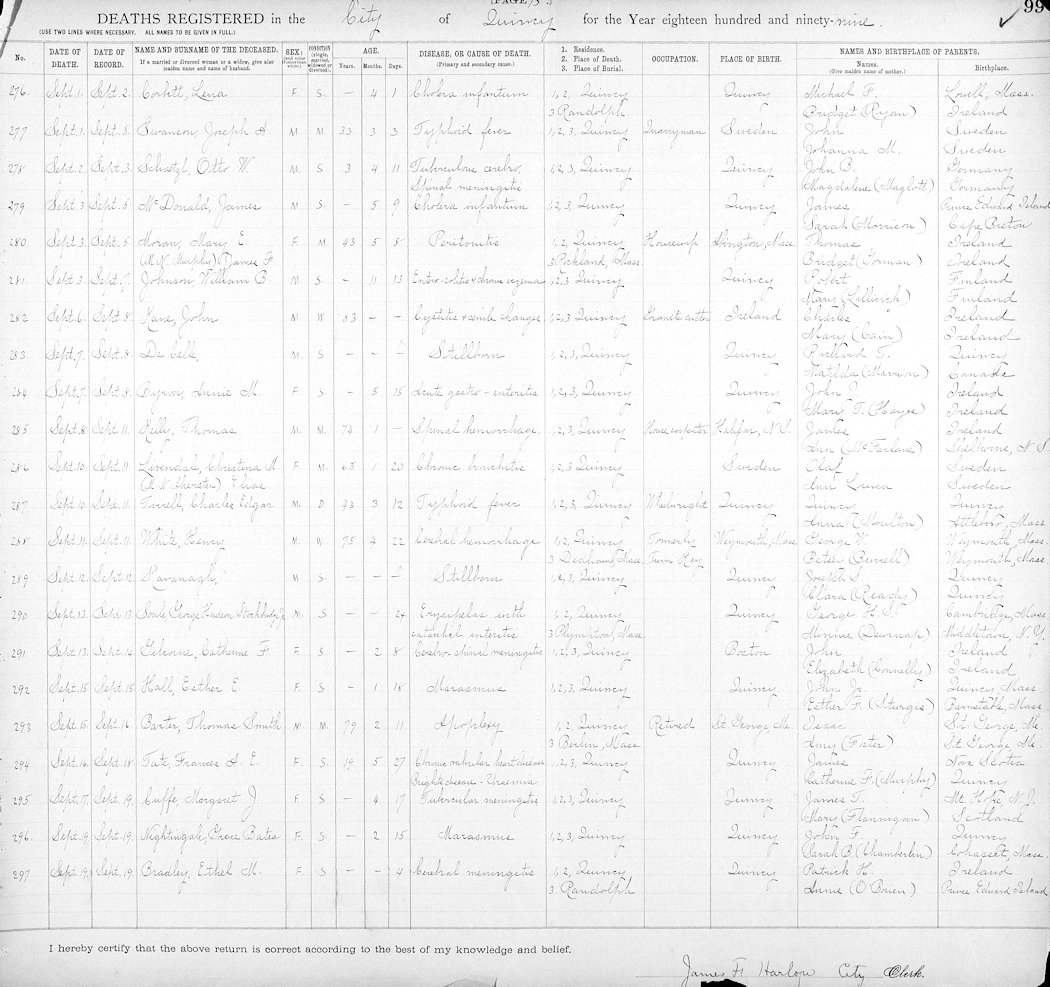 (PAGE/3.)
99
DEATHS REGISTERED in the City of Quincy for the Year eighteen hundred and ninety-nine.
(USE TWO LINES WHERE NECESSARY. ALL NAMES TO BE GIVEN IN FULL.)
No. DATE OF DEATH. DATE OF RECORD. NAME AND SURNAME OF THE DECEASED. If a married or divorced woman or a widow, give also maiden name and name of husband. SEX: CONDITION (single, married, widowed or divorced). AGE. Years. Months. Days. DISEASE, OR CAUSE OF DEATH. (Primary and secondary cause.) 1. Residence. 2. Place of Death. 3. Place of Burial. OCCUPATION. PLACE OF BIRTH. NAMES AND BIRTHPLACE OF PARENTS. Names. (Give maiden name of mother.) Birthplace.
276. Sept. 1. Sept. 2. Corbett, Lena F. S. – 4 1 Cholera infantum 1, 2, Quincy Quincy Michael F. Lowell, Mass.
3 Randolph Bridget (Ryan) Ireland
277 Sept. 1. Sept. 5. Swanson, Joseph A M M. 33 3 3 Typhoid fever 1, 2, 3, Quincy Quarryman Sweden John Sweden
Johanna M. Sweden
278 Sept. 2 Sept. 3 Otto W. M. S 3 4 11 Tuberculous cerebro 1, 2, 3, Quincy Quincy John B. Germany
Spinal meningitis Magdalene (Maglott) Germany
279 Sept. 3 Sept. 5 McDonald, James M S. – 5 9 Cholera infantum 1, 2, 3, Quincy Quincy James Prince Edward Island
Sarah (Morrison) Cape Breton
280 Sept. 3. Sept. 5. Moran, Mary E F. M 43 5 8 Peritonitis 1, 2, Quincy Housewife Abington, Mass Thomas Ireland
(M. N. Murphy) James F. 3 Rockland, Mass. Bridget (Gorman) Ireland
281. Sept 3. Sept. 7. Johnson, William B. M S. – 11 13 Entero-colitis & chronic eczema 1, 2, 3 Quincy Quincy Robert Finland
Mary Finland
282 Sept. 6. Sept 8. Kane, John M W 83 – – Cystitis & senile changes 1, 2, 3 Quincy Granite cutter Ireland Charles Ireland
Mary (Cain) Ireland
283 Sept. 7. Sept. 8 De bell, M. S – – – Stillborn 1, 2, 3, Quincy Quincy Richard T. Quincy
Matilda (Marrion) Canada
284 Sept. 7. Sept. 8. Byron, Annie M. F S. – 5 15 Acute gastro-enteritis 1, 2, 3, Quincy Quincy John J. Ireland
Mary T. (Hayes) Ireland
285 Sept. 8 Sept. 11. Kelly, Thomas M. M. 74 1 – Spinal hemorrhage. 1, 2, 3, Quincy House carpenter Halifax, N.S. James Ireland
Ann (McFarlane) Shelborne, N.S.
286 Sept. 10. Sept. 11 Christina M. F. M. 65 1 23 Chronic bronchitis 1, 2, 3 Quincy Sweden Olaf Sweden
Elias Ann Louisa Sweden
287 Sept. 10. Sept. 11. Tirrell, Charles Edgar M. D 43 3 12 Typhoid fever 1, 2, 3, Quincy Wheelwright Quincy Quincy Quincy
Anna (Moulton) Attleboro, Mass
288 Sept. 11. Sept. 11. White, Henry M. W. 75 4 22 Cerebral hemorrhage 1, 2, Quincy Formerly Weymouth, Mass George W. Weymouth, Mass.
3 Mass. Turn Key (Burrell) Weymouth, Mass.
289 Sept. 12. Sept. 12. Kavanagh, M S. – – – Stillborn 1, 2, 3, Quincy Quincy Joseph S Quincy
Clara (Ready) Quincy
290 Sept. 13. Sept. 13. Soule, George Hudson M. S. – – 24 Erysipelas with 1, 2, Quincy Quincy George H. S. Cambridge, Mass
catarrhal enteritis 3 Plympton, Mass. Minnie Middletown, N.Y.
291 Sept. 13. Sept. 14. Catherine F. F. S – 2 8 Cerebro-spinal meningitis 1, 2, 3, Quincy Boston John Ireland
Elizabeth (Connelly) Ireland
292 Sept. 15 Sept. 15 Hall, Esther E. F. S. – 1 18 Marasmus 1, 2, 3, Quincy Quincy John Jr. Quincy, Mass
Esther F. (Sturgis) Barnstable, Mass
293 Sept. 15. Sept. 16. Baxter, Thomas Smith M M. 79 2 11 Apoplexy 1, 2, Quincy Retired St George, Me. Isaac St. George, Me.
3 Berlin, Mass Amy (Foster) St George, Me.
294 Sept. 16. Sept. 18 Tate, Frances A. E. F. S. 19 5 27 Chronic valvular heart disease 1, 2, 3, Quincy Quincy James Nova Scotia
Brights disease - Uraemia Catherine F. (Murphy) Quincy
295 Sept. 17. Sept. 19. Cuffe, Margaret J. F S – 4 17 Tubercular meningitis 1, 2, 3, Quincy Quincy James T. Mt. N.J.
Mary (Flannigan) Scotland
296 Sept. 19. Sept. 19. Nightingale, Grace Bates F. S. – 2 15 Marasmus 1, 2, 3, Quincy Quincy John F. Quincy
Sarah B. (Chamberlin) Cohasset, Mass.
297 Sept. 19. Sept. 19. Bradley, Ethel M. F S – – 4 Cerebral meningitis 1, 2, Quincy Quincy Patrick H. Ireland
3. Randolph Annie (O'Brien) Prince Edward Island
I hereby certify that the above return is correct according to the best of my knowledge and belief.
James F. Harlow City Clerk.